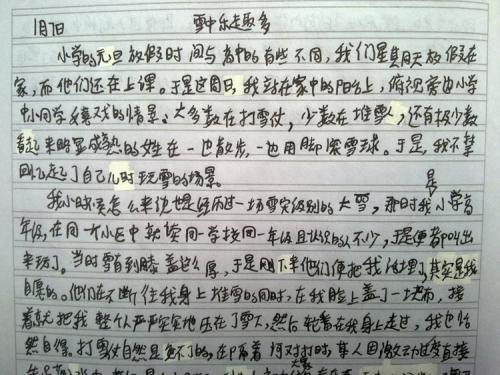 1月7日 雪中乐趣多
小学的元旦放假时间与高中的有些不同,我们星期天放假在
家,而他们还在上课。于是这周日,我站在家中的阳台上,俯视旁边小学
中小同学嬉戏的情景。大多数在打雪仗,少数在堆雪人,还有极少数
看起来明显成熟的姓在一也散步,一也用脚踩雪球。于是,我不禁
回忆起了自己儿时玩雪的场景。
我小时候怎么来说也是经历过一场雪灾级别的大雪,那时我小学高
年级,在同一个小区中就读同一学校同一年级且认识的人不少,于是便都约出
来玩了。当时雪有到膝盖这么厚,于是刚下来他们便把我活埋了,其实是我
是
自愿的。他们在不断往我身上堆雪的同时,在我脸上盖了一块布,接
着就把我整个人严严实实地压在了雪下,然后轮着在我身上走过,我也怡
然自得。打雪仗自然是免不了的,在隔着河对打时,某人因激动过度直接